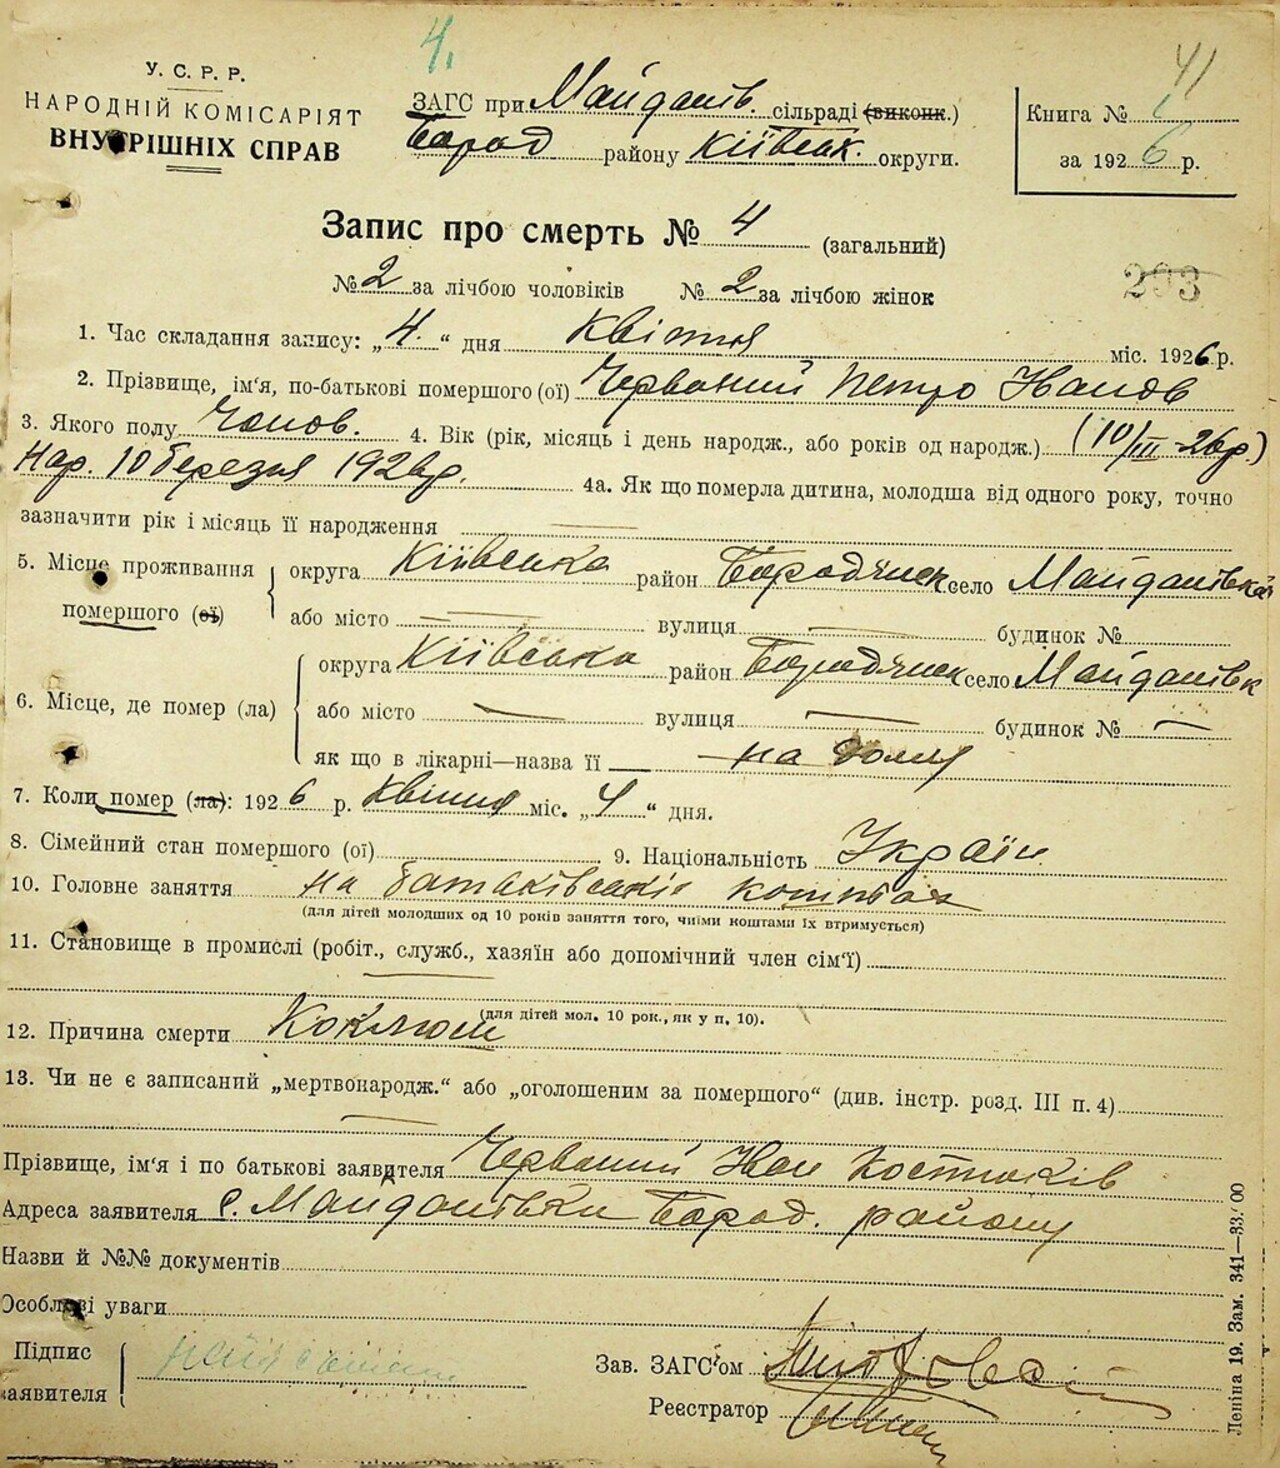 4.
41
У. С. Р. Р.
НАРОДНІЙ КОМІСАРІЯТ
ВНУТРІШНІХ СПРАВ
ЗАГС при Майданів. сільраді (виконк.)
Бород району Київськ. округи.
Книга №
за 1926 р.
Запис про смерть № 4 (загальний)
№ 2 за лічбою чоловіків № 2 за лічбою жінок
203
1. Час складання запису: „4.“ дня Квітня міс. 1926 р.
2. Прізвище, ім'я, по-батькові помершого (ої) Червоний Петро Иванов
3. Якого полу Чолов. 4. Вік (рік, місяць і день народж., або років од народж.) (10/III 26р.)
Нар. 10 березня 1926р. 4а. Як що померла дитина, молодша від одного року, точно
зазначити рік і місяць її народження —
5. Місце проживання помершого (ої) округа Київська район Бородянськ село Майданівка
або місто — вулиця — будинок №
6. Місце, де помер (ла) округа Київська район Бородянськ село Майданівк
або місто — вулиця — будинок № —
як що в лікарні—назва її — на дому
7. Коли помер (ла): 1926 р. Квітня міс. „4“ дня.
8. Сімейний стан помершого (ої) 9. Національність Україн.
10. Головне заняття на батьківських коштах
(для дітей молодших од 10 років заняття того, чиїми коштами їх втримується)
11. Становище в промислі (робіт., служб., хазяїн або допомічний член сім'ї)
—
(для дітей мол. 10 рок., як у п. 10).
12. Причина смерти Коклюш
13. Чи не є записаний „мертвонародж.“ або „оголошеним за помершого“ (див. інстр. розд. III п. 4)
—
Прізвище, ім'я і по батькові заявителя Червоний Иван Костюків
Адреса заявителя с. Майданівки Бород. району
Назви й №№ документів
Особливі уваги
Підпис заявителя
Зав. ЗАГС'ом
Реєстратор
Леніна 19. Зам. 341—33.